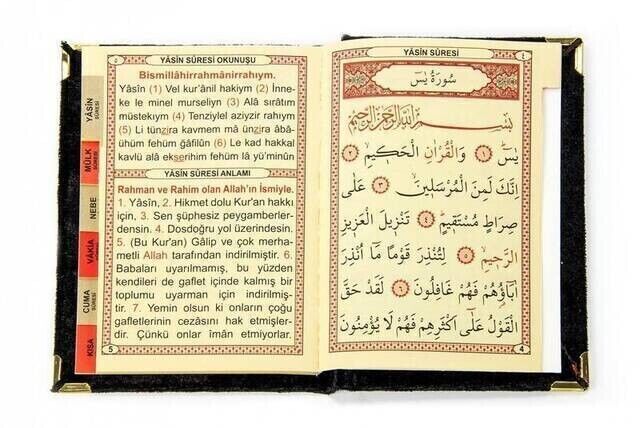 ٥
YÂSİN SÛRESİ OKUNUŞU
Bismillâhirrahmânirrahıym.
Yâsîn (1) Vel kur'ânil hakiym (2) İnne-
ke le minel murseliyn (3) Alâ sırâtım
müstekıym (4) Tenziylel aziyzir rahıym
(5) Li tünzira kavmem mâ ünzira âbâ-
ühüm fehüm gâfilûn (6) Le kad hakkal
kavlü alâ ekserihim fehüm lâ yü'minûn
YÂSİN SÛRESİ ANLAMI
Rahman ve Rahim olan Allah'ın İsmiyle.
1. Yâsîn, 2. Hikmet dolu Kur'an hakkı
için, 3. Sen şüphesiz peygamberler-
densin. 4. Dosdoğru yol üzerindesin.
5. (Bu Kur'an) Gâlip ve çok merha-
metli Allah tarafından indirilmiştir. 6.
Babaları uyarılmamış, bu yüzden
kendileri de gaflet içinde kalmış bir
toplumu uyarman için indirilmiş-
tir. 7. Yemin olsun ki onların çoğu
gafletlerinin cezasını hak etmişler-
dir. Çünkü onlar îman etmiyorlar.
5
YÂSİN
SÛRESİ
MÜLK
SÛRESİ
NEBE
VÂKIA
SÛRESİ
CUMA
SÛRESİ
KISA
YÂSİN SÛRESİ
٤
سُورَةُ يٰسٓ
بِسْمِ اللّٰهِ الرَّحْمٰنِ الرَّحِيمِ
يٰسٓ ﴿١﴾ وَالْقُرْاٰنِ الْحَكِيمِ ﴿٢﴾
اِنَّكَ لَمِنَ الْمُرْسَلِينَ ﴿٣﴾ عَلٰى
صِرَاطٍ مُسْتَقِيمٍ ﴿٤﴾ تَنْزِيلَ الْعَزِيزِ
الرَّحِيمِ ﴿٥﴾ لِتُنْذِرَ قَوْمًا مَٓا اُنْذِرَ
اٰبَٓاؤُهُمْ فَهُمْ غَافِلُونَ ﴿٦﴾ لَقَدْ حَقَّ
الْقَوْلُ عَلٰٓى اَكْثَرِهِمْ فَهُمْ لَا يُؤْمِنُونَ
4